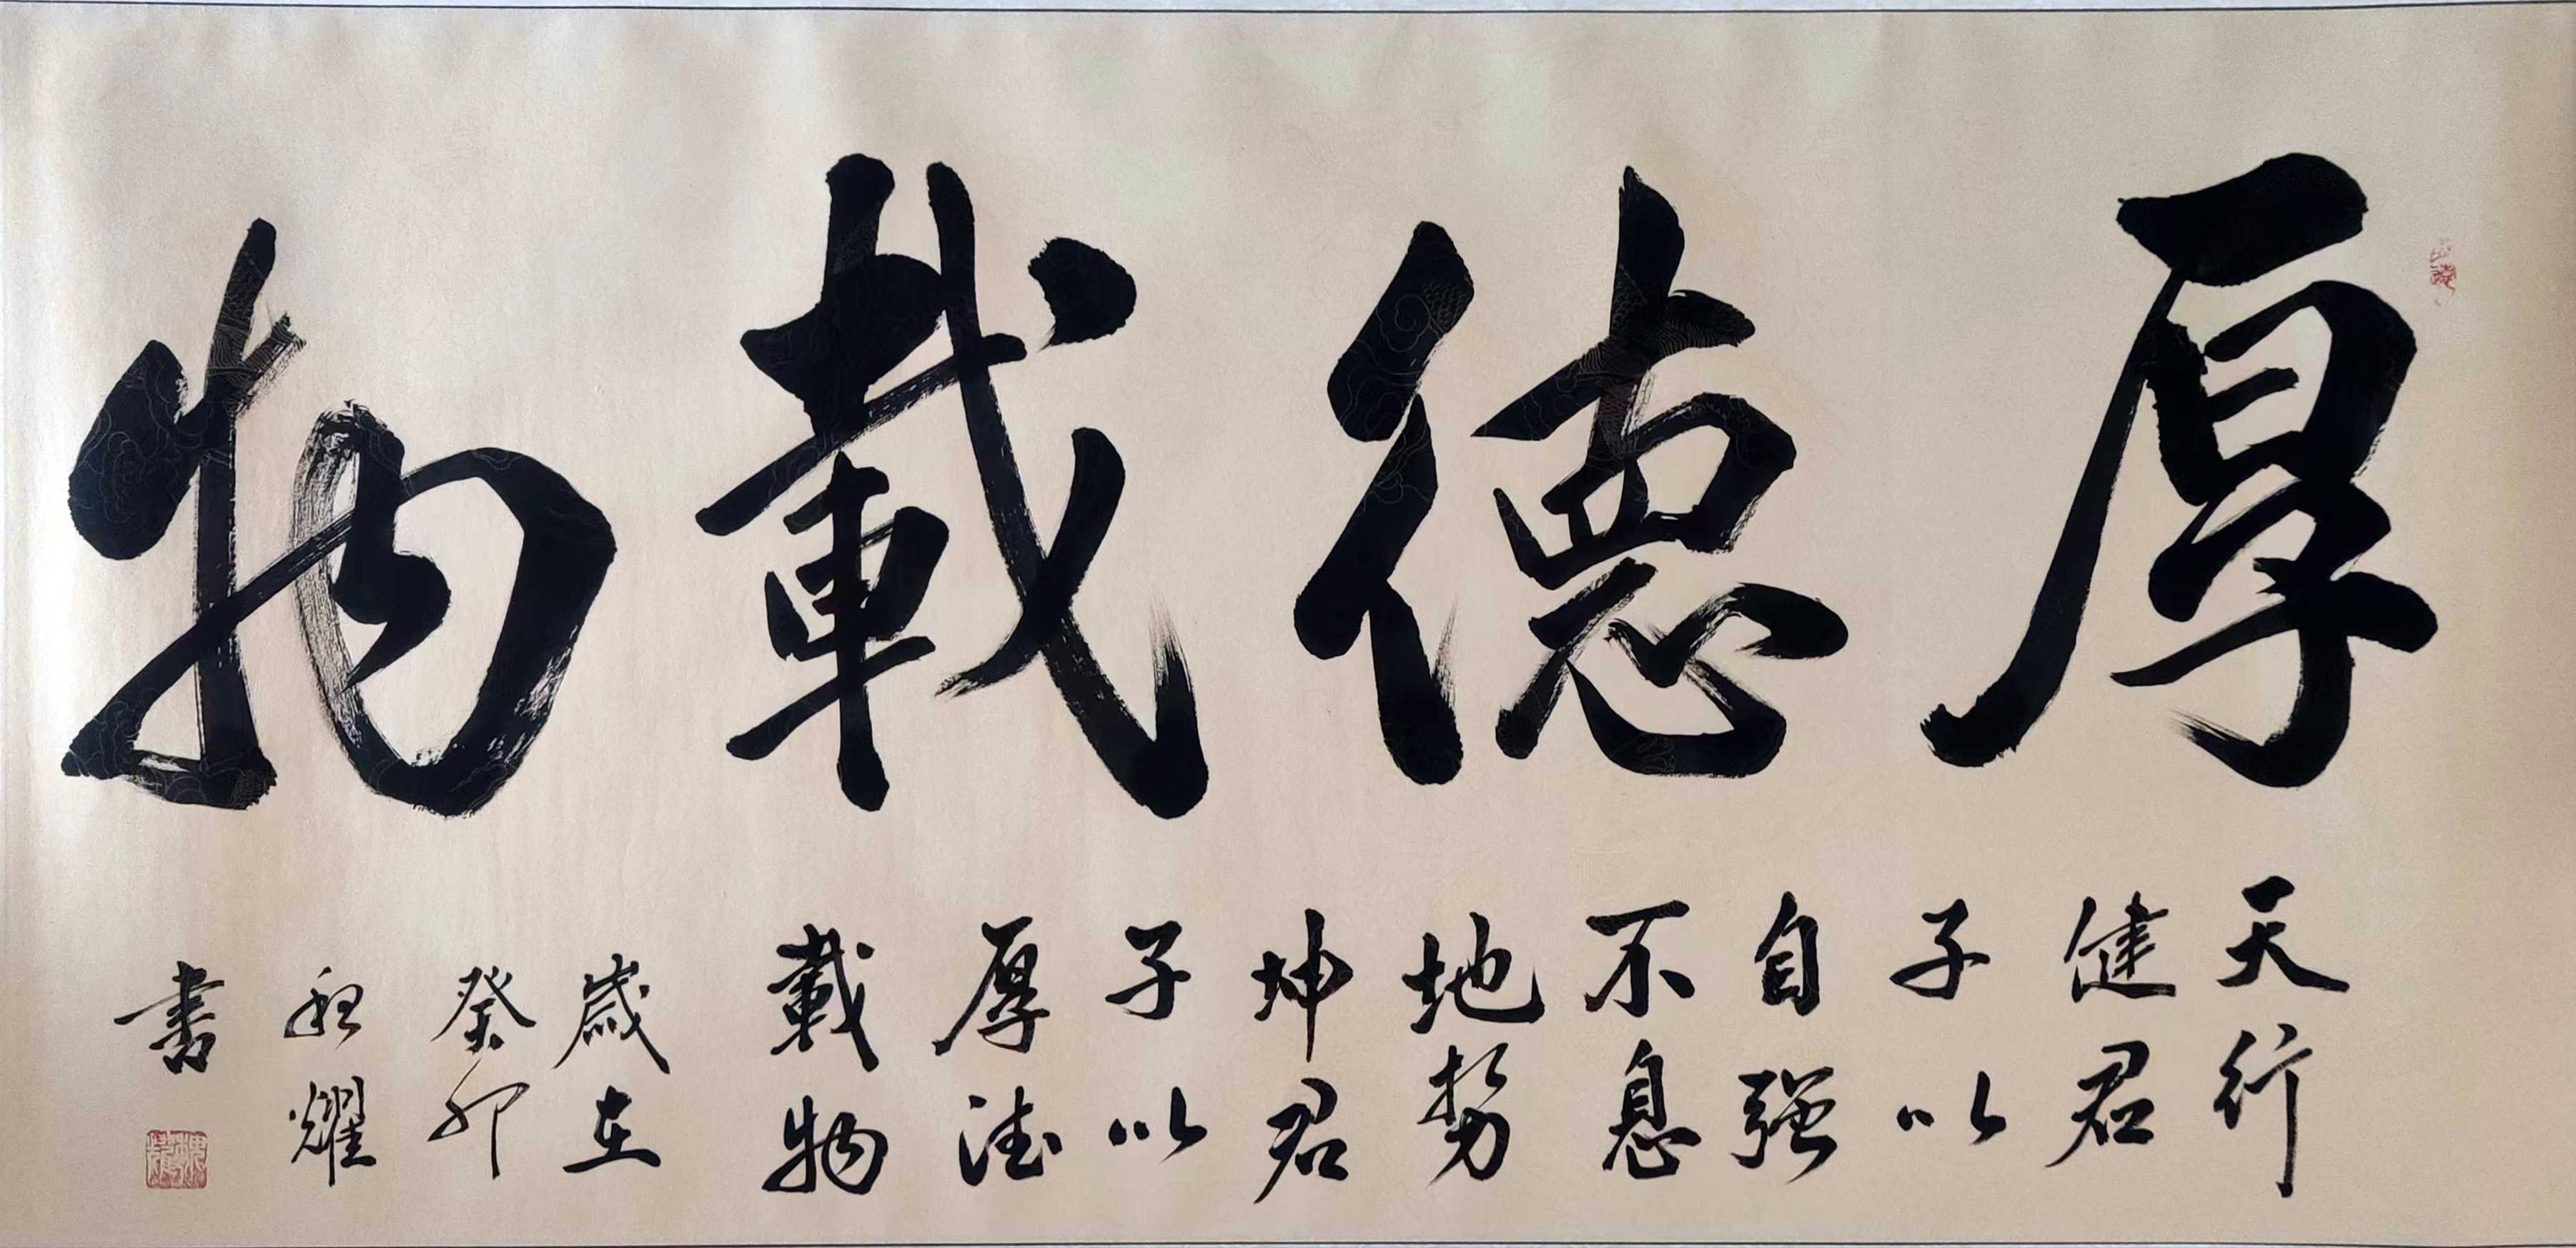 厚德載物
天行
健君
子以
自强
不息
地勢
坤君
子以
厚德
載物
歲在
癸卯
耀
書